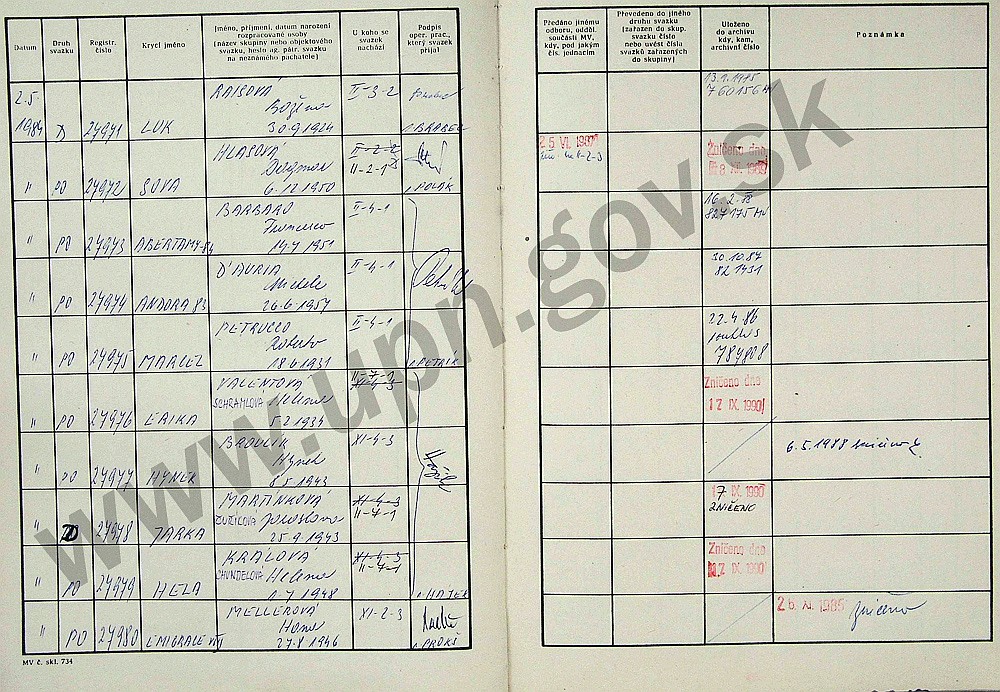 Datum
Druh svazku
Registr. číslo
Krycí jméno
Jméno, příjmení, datum narození
rozpracované osoby
(název skupiny nebo objektového
svazku, heslo ag. pátr. svazku
na neznámého pachatele)
U koho se
svazek
nachází
Podpis
oper. prac.,
který svazek
přijal
Předáno jinému
odboru, odděl.
součásti MV,
kdy, pod jakým
čís. jednacím
Převedeno do jiného
druhu svazku
(zařazen do skup.
svazku číslo
nebo uvést čísla
svazků zařazených
do skupiny)
Uloženo
do archivu
kdy, kam,
archivní číslo
Poznámka
2.5. RAISOVÁ II-3-2
Božena 760156 MV
1984 D 27971 LUK 30.9.1924 BRABEC
HLASOVÁ II-2-2 25. VI. 1987 Zničeno dne
Dagmar II-2-1
" PO 27972 SOVA 6.12.1950 POLÁK 8. XII. 1989
BARBARO II-4-1 16.2.
Francesco 827175 MV
" PO 27973 ABERTAMY-84 1951
D'AURIA II-4-1 30.10.87
Michele 821431
" PO 27974 ANDORA 83 26.6.1957
PETRUCCO II-4-1 22.4.86
Roberto
" PO 27975 MARCEL 18.6.1931 PETRÍK 784988
VALENTOVÁ II-7-1 Zničeno dne
SCHRAMLOVÁ Helena XI-4-3
" PO 27976 ERIKA 5.2.1934 17 IX. 1990
BROULIK XI-4-3 6.5.1988
Hynek
" PO 27977 HYNEK 1943
MARTÍNKOVÁ XI-4-3 17 IX. 1990
Jaroslava II-7-1 ZNIČENO
" 27978 JARKA 25.9.1943
KRÁLOVÁ XI-4-3 Zničeno dne
CHUNDELOVÁ Helena II-7-1 17 IX. 1990
" PO 27979 HELA 1.7.1948 HÁJEK
MELLEROVÁ XI-2-3 26. XI. 1985 zničeno
Hana
" PO 27980 27.8.1946 PROKŠ
MV č. skl. 734
www.upn.gov.sk